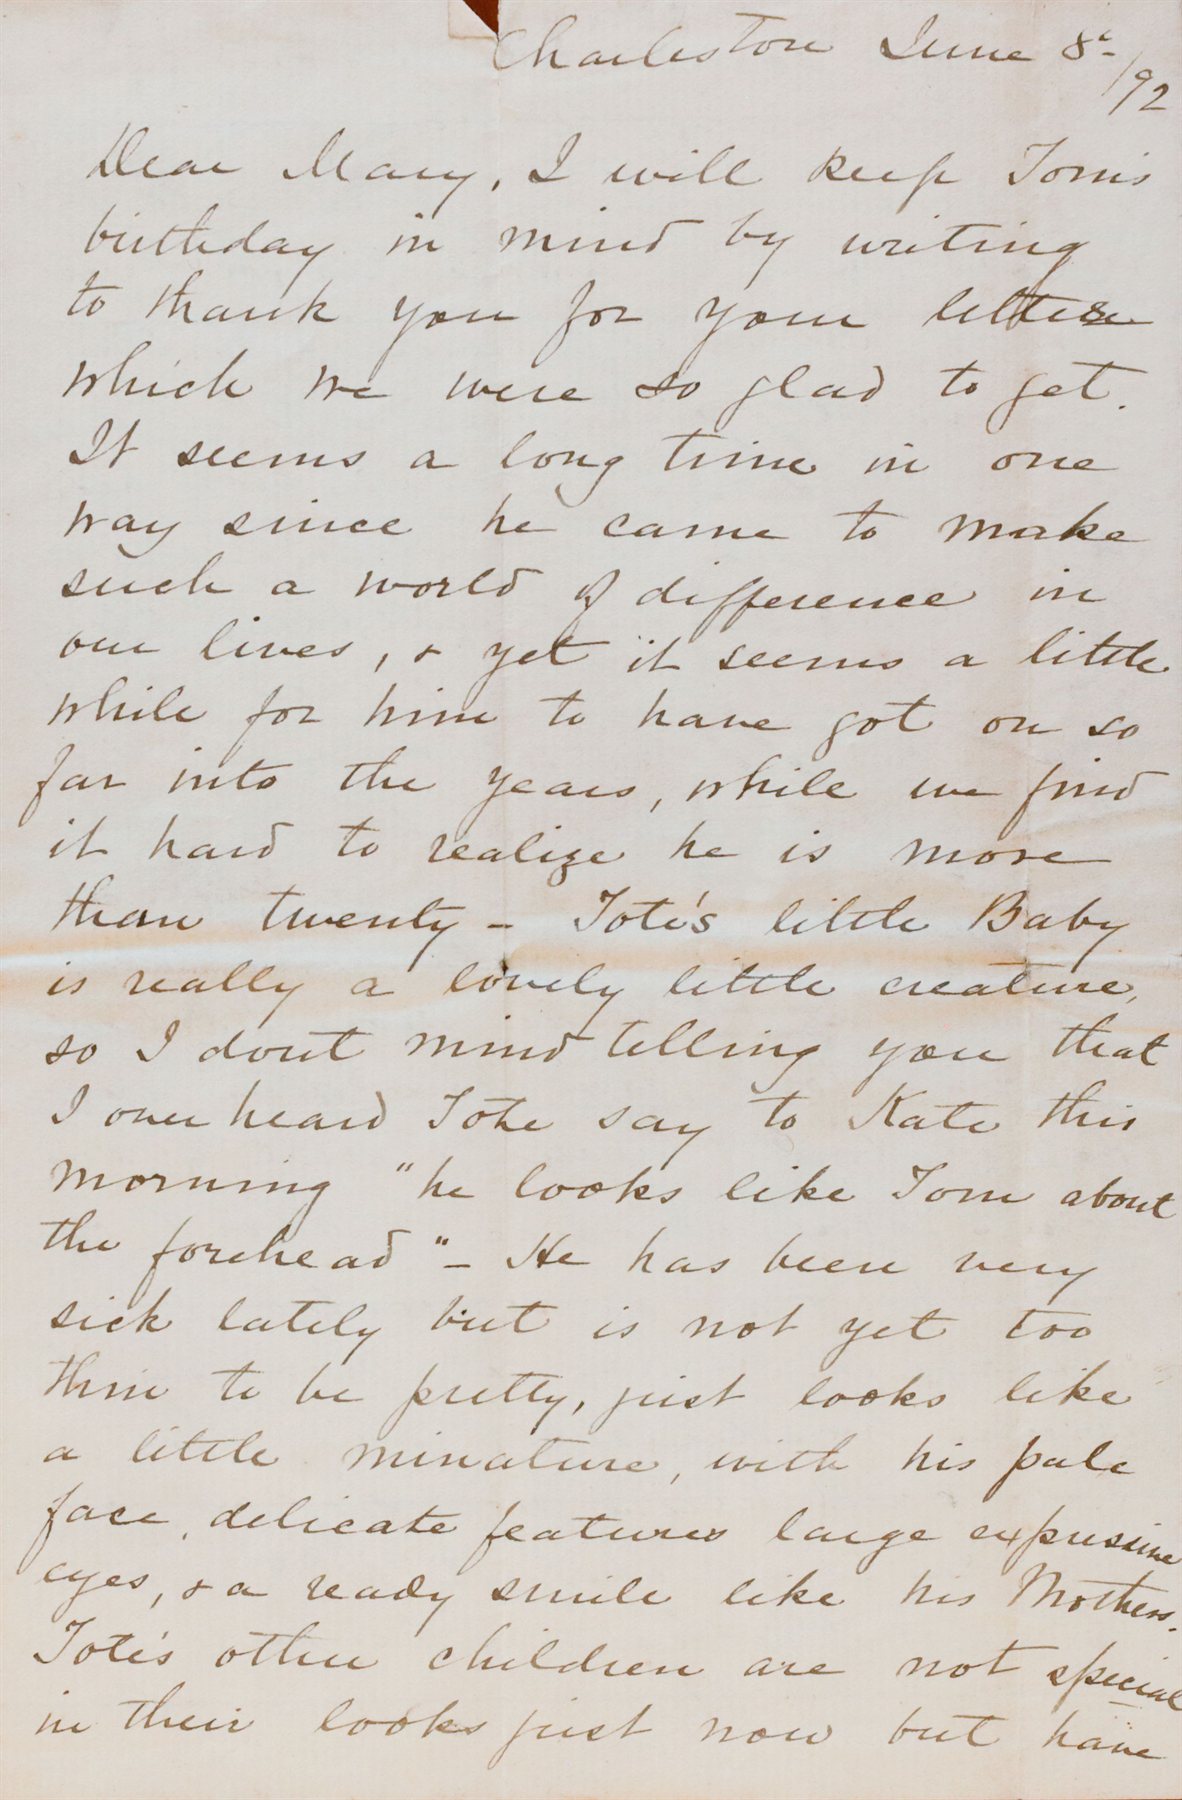 Charleston June 8th/92
Dear Mary, I will keep Tom's
birthday in mind by writing
to thank you for your letters
which we were so glad to get.
It seems a long time in one
way since he came to make
such a world of difference in
our lives, & yet it seems a little
while for him to have got on so
far into the years, while we find
it hard to realize he is more
than twenty – Tote's little Baby
is really a lovely little creature,
so I dont mind telling you that
I over heard Tote say to Kate this
morning "he looks like Tom about
the forehead" – He has been very
sick lately but is not yet too
thin to be pretty, just looks like
a little minature, with his pale
face, delicate features large expressive
eyes, & a ready smile like his Mothers.
Tote's other children are not special
in their looks just now but have